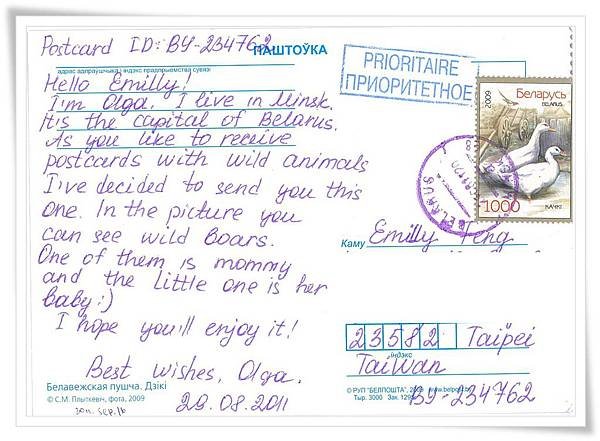 Postcard ID: BY-234762
ПАШТОЎКА
адрас адпраўшчыка і індэкс прадпрыемства сувязі
Hello Emilly!
I'm Olga. I live in Minsk.
It's the capital of Belarus.
As you like to receive
postcards with wild animals
I've decided to send you this
one. In the picture you
can see wild boars.
One of them is mommy
and the little one is her
baby:)
I hope you'll enjoy it!
Best wishes, Olga.
29.08.2011
Белавежская пушча. Дзікі
© С.М. Плыткевіч, фота, 2009
son. sep. 16
PRIORITAIRE
ПРИОРИТЕТНОЕ
2009
Беларусь
BELARUS
1000
КАЧКІ
BELARUS
Каму
Emilly Feng
23582 Taipei
індэкс
Taiwan
© РУП "БЕЛПОШТА"
Тыр. 3000 Зак.
BY-234762